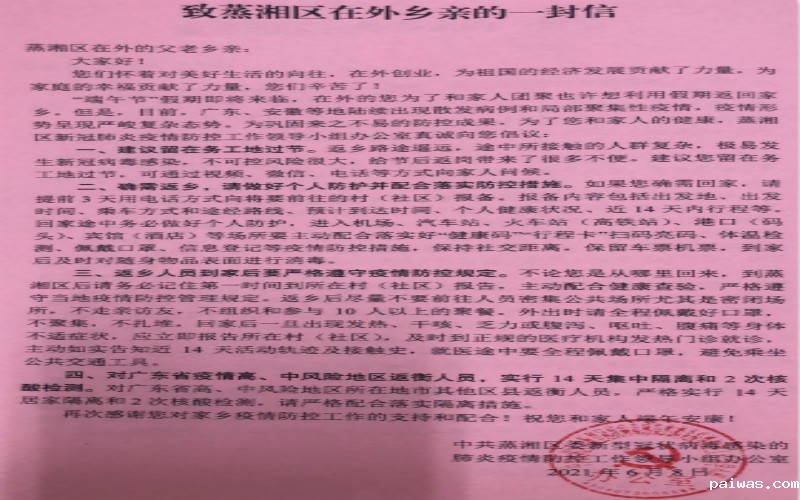 致蒸湘区在外乡亲的一封信
蒸湘区在外的父老乡亲：
大家好！
您们怀着对美好生活的向往，在外创业，为祖国的经济发展贡献了力量，为
家庭的幸福贡献了力量，您们辛苦了！
“端午节”假期即将来临，在外的您为了和家人团聚也许想利用假期返回家
乡。但是，目前，广东、安徽等地陆续出现散发病例和局部聚集性疫情，疫情形
势呈现严峻复杂态势。为巩固来之不易的防控成果，为了您和家人的健康，蒸湘
区新冠肺炎疫情防控工作领导小组办公室真诚向您倡议：
一、建议留在务工地过节。返乡路途遥远，途中所接触的人群复杂，极易发
生新冠病毒感染，不可控风险很大，给节后返岗带来了很多不便。建议您留在务
工地过节，可通过视频、微信、电话等方式向家人问候。
二、确需返乡，请做好个人防护并配合落实防控措施。如果您确需回家，请
提前 3 天用电话方式向将要前往的村（社区）报备。报备内容包括出发地、出发
时间、乘车方式和途经路线、预计到达时间、个人健康状况、近 14 天内行程等。
回家途中务必做好个人防护，进入机场、汽车站、火车站（高铁站）、港口（码
头）、宾馆（酒店）等场所要主动配合落实好“健康码”“行程卡”扫码亮码、体温检
测、佩戴口罩、信息登记等疫情防控措施，保持社交距离。保留车票机票，到家
后及时对随身物品表面进行消毒。
三、返乡人员到家后要严格遵守疫情防控规定。不论您是从哪里回来，到蒸
湘区后请务必记住第一时间到所在村（社区）报告，主动配合健康查验，严格遵
守当地疫情防控管理规定。返乡后尽量不要前往人员密集公共场所尤其是密闭场
所，不走亲访友，不组织和参与 10 人以上的聚餐。外出时请全程佩戴好口罩，
不聚集，不扎堆。回家后一旦出现发热、干咳、乏力或腹泻、呕吐、腹痛等身体
不适症状，应立即报告所在村（社区），及时到正规的医疗机构发热门诊就诊，
主动如实告知近 14 天活动轨迹及接触史，就医途中要全程佩戴口罩，避免乘坐
公共交通工具。
四、对广东省疫情高、中风险地区返衡人员，实行 14 天集中隔离和 2 次核
酸检测。对广东省高、中风险地区所在地市其他区县返衡人员，严格实行 14 天
居家隔离和 2 次核酸检测。请严格配合落实隔离措施。
再次感谢您对家乡疫情防控工作的支持和配合！祝您和家人端午安康！
中共蒸湘区委新型冠状病毒感染的
肺炎疫情防控工作领导小组办公室
2021 年 6 月 8 日
办公室
paiwas.com